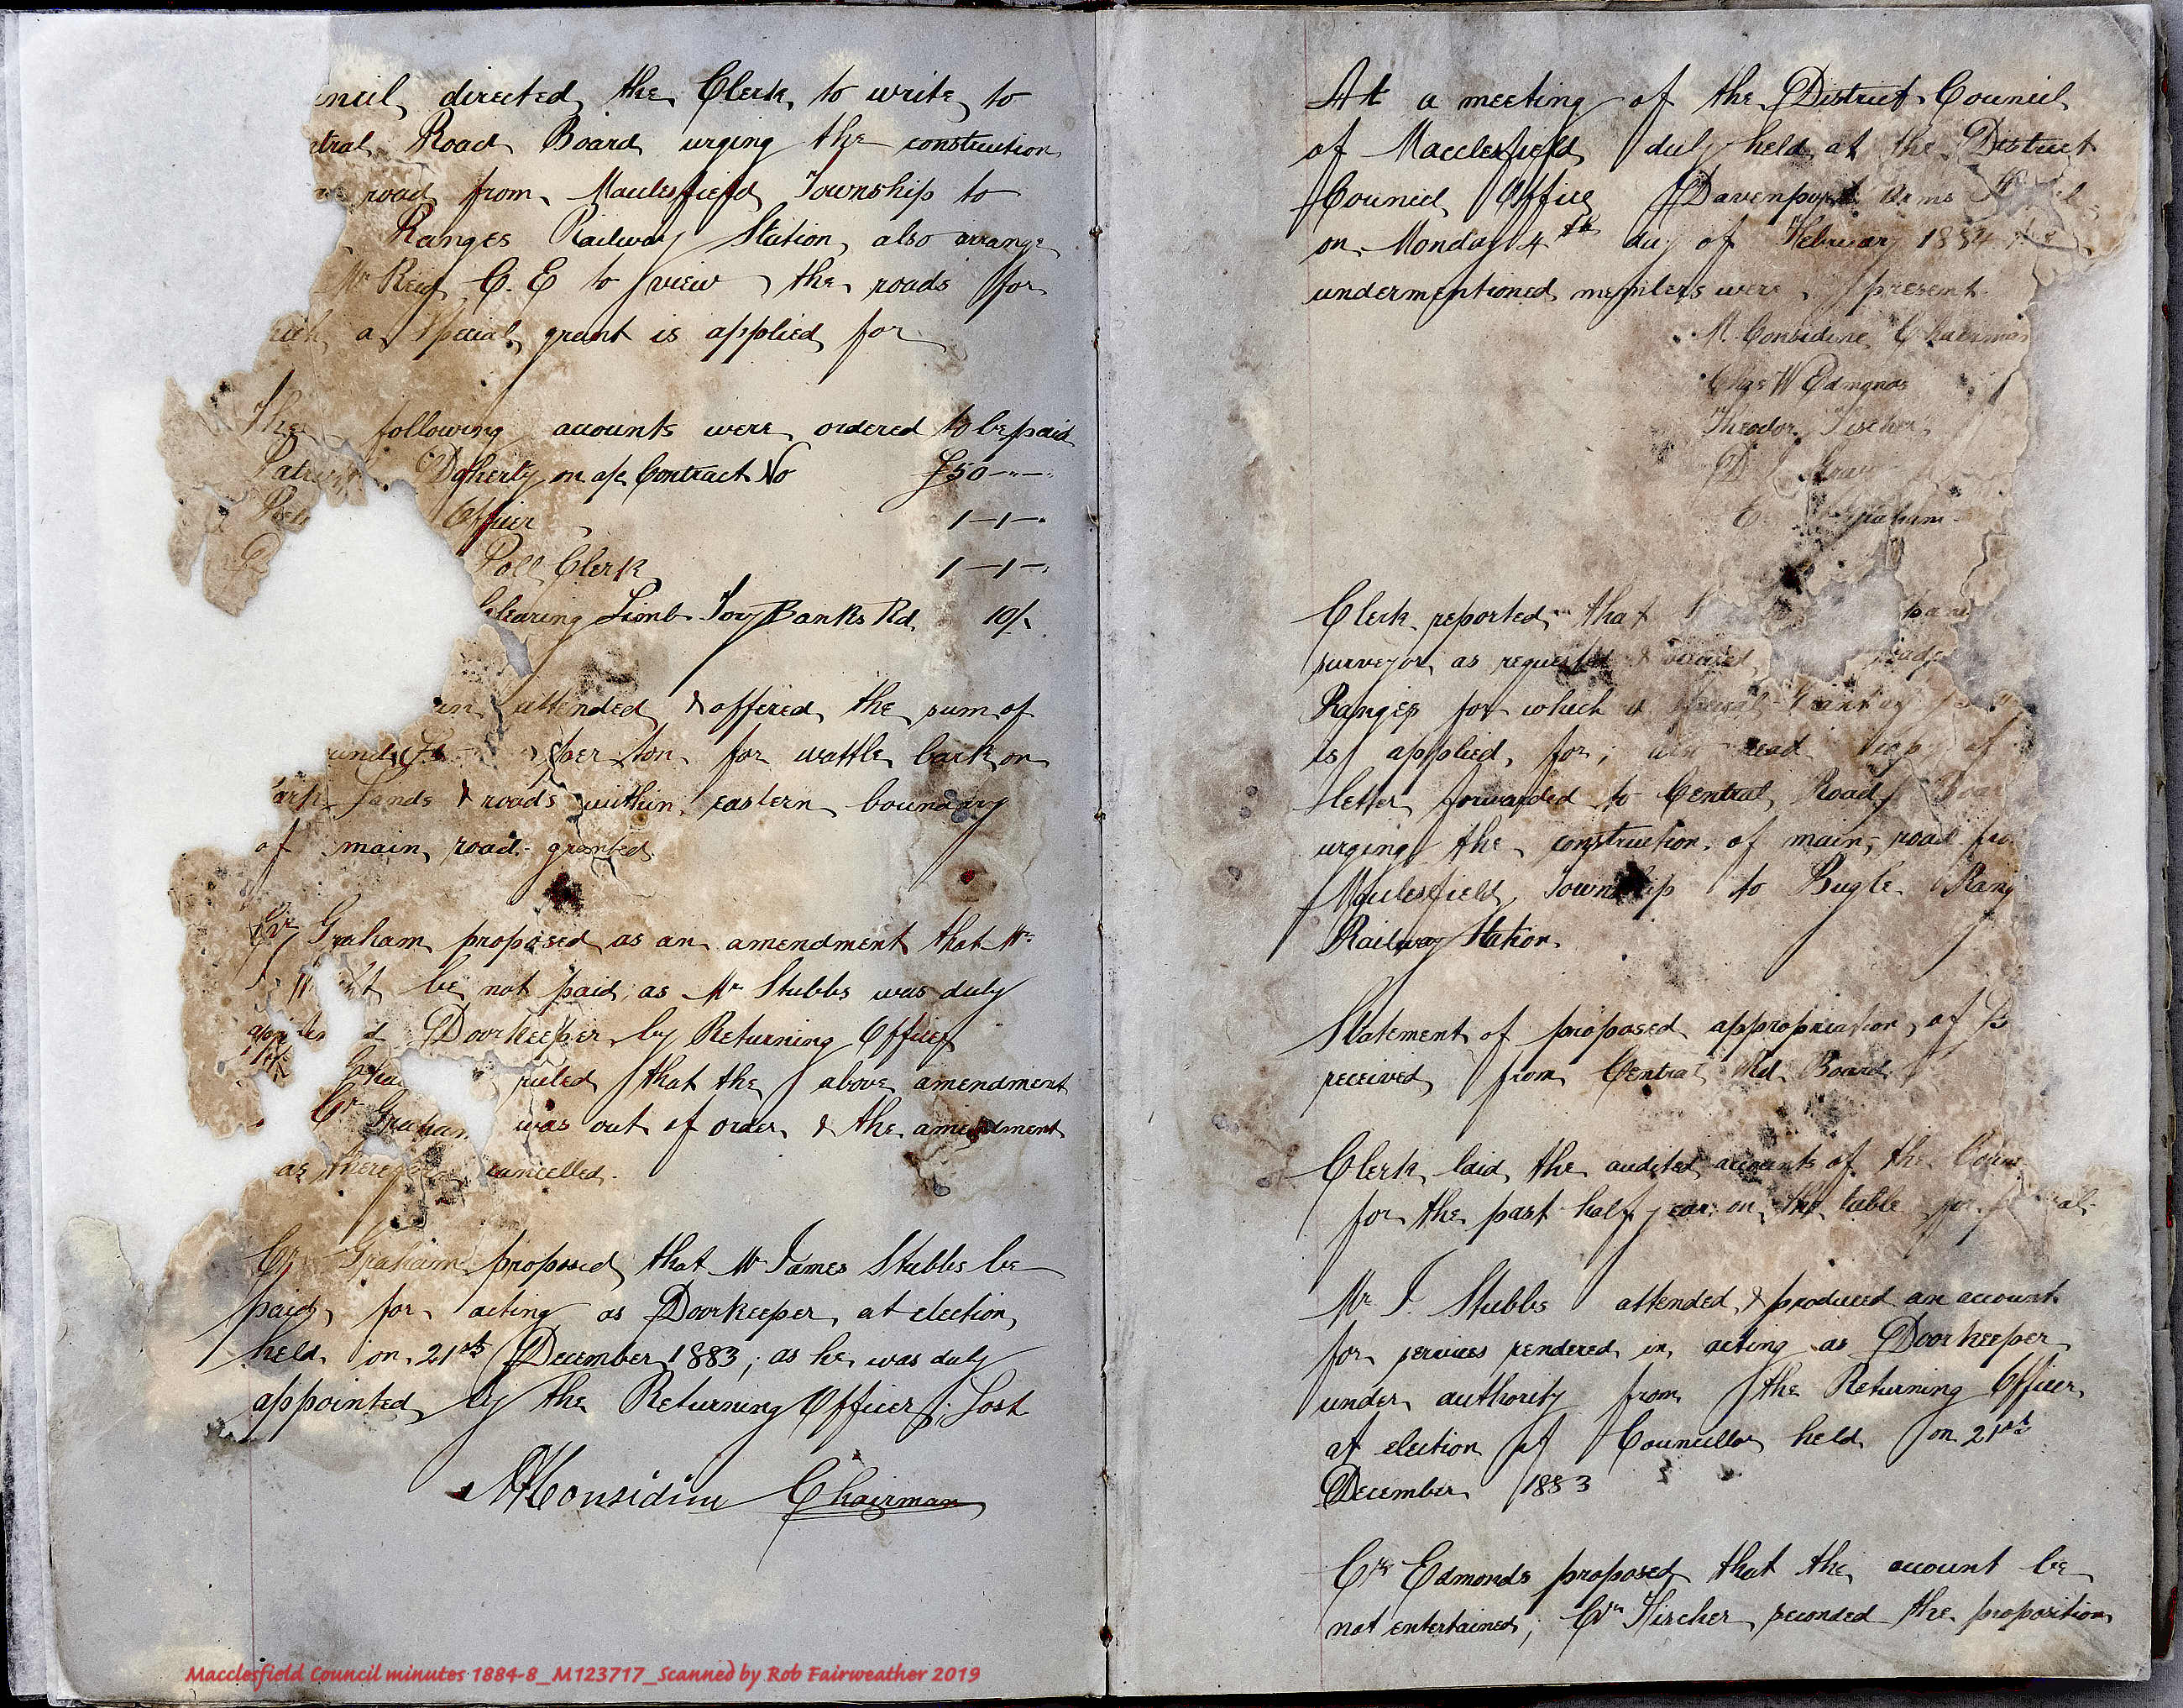 directed the Clerk to write to
Road Board urging the construction
road from Macclesfield Township to
Ranges Railway Station, also arrange
Mr Reid C.E to view the roads for
a special grant is applied for
The following accounts were ordered to be paid
Doherty on a/c Contract No £50-"-"
Officer 1-1-"
Poll Clerk 1-1-"
Clearing Limb Tory Banks Rd 10/-
attended & offered the sum of
per ton for wattle bark on
lands & roads within eastern boundary
of main road - granted
Cr Graham proposed as an amendment that Mr
be not paid, as Mr Stubbs was duly
Doorkeeper by Returning Officer
ruled that the above amendment
Cr Graham was out of order & the amendment
as therefore cancelled.
Cr Graham proposed that Mr James Stubbs be
paid for acting as Doorkeeper at election
held on 21st December 1883; as he was duly
appointed by the Returning Officer. Lost
M Considine Chairman
At a meeting of the District Council
of Macclesfield duly held at the District
Council Office Davenport Arms
on Monday 4th day of February 1884
undermentioned members were present.
M. Considine Chairman
Chas W Edmonds
Theodor Fischer
D
E Graham
Clerk reported that
surveyor as requested & viewed
Ranges for which a special Grant
is applied for; also read copy of
letter forwarded to Central Road
urging the construction of main road
Macclesfield Township to Bugle
Railway Station.
Statement of proposed appropriation of
received from Central Rd Board.
Clerk laid the audited accounts of the
for the past half year on the table for
Mr J Stubbs attended & produced an account
for services rendered in acting as Doorkeeper
under authority from the Returning Officer
at election of Councillor held on 21st
December 1883
Crs Edmonds proposed that the account be
not entertained; Cr Fischer seconded the proposition
Macclesfield Council minutes 1884-8_M123717_Scanned by Rob Fairweather 2019